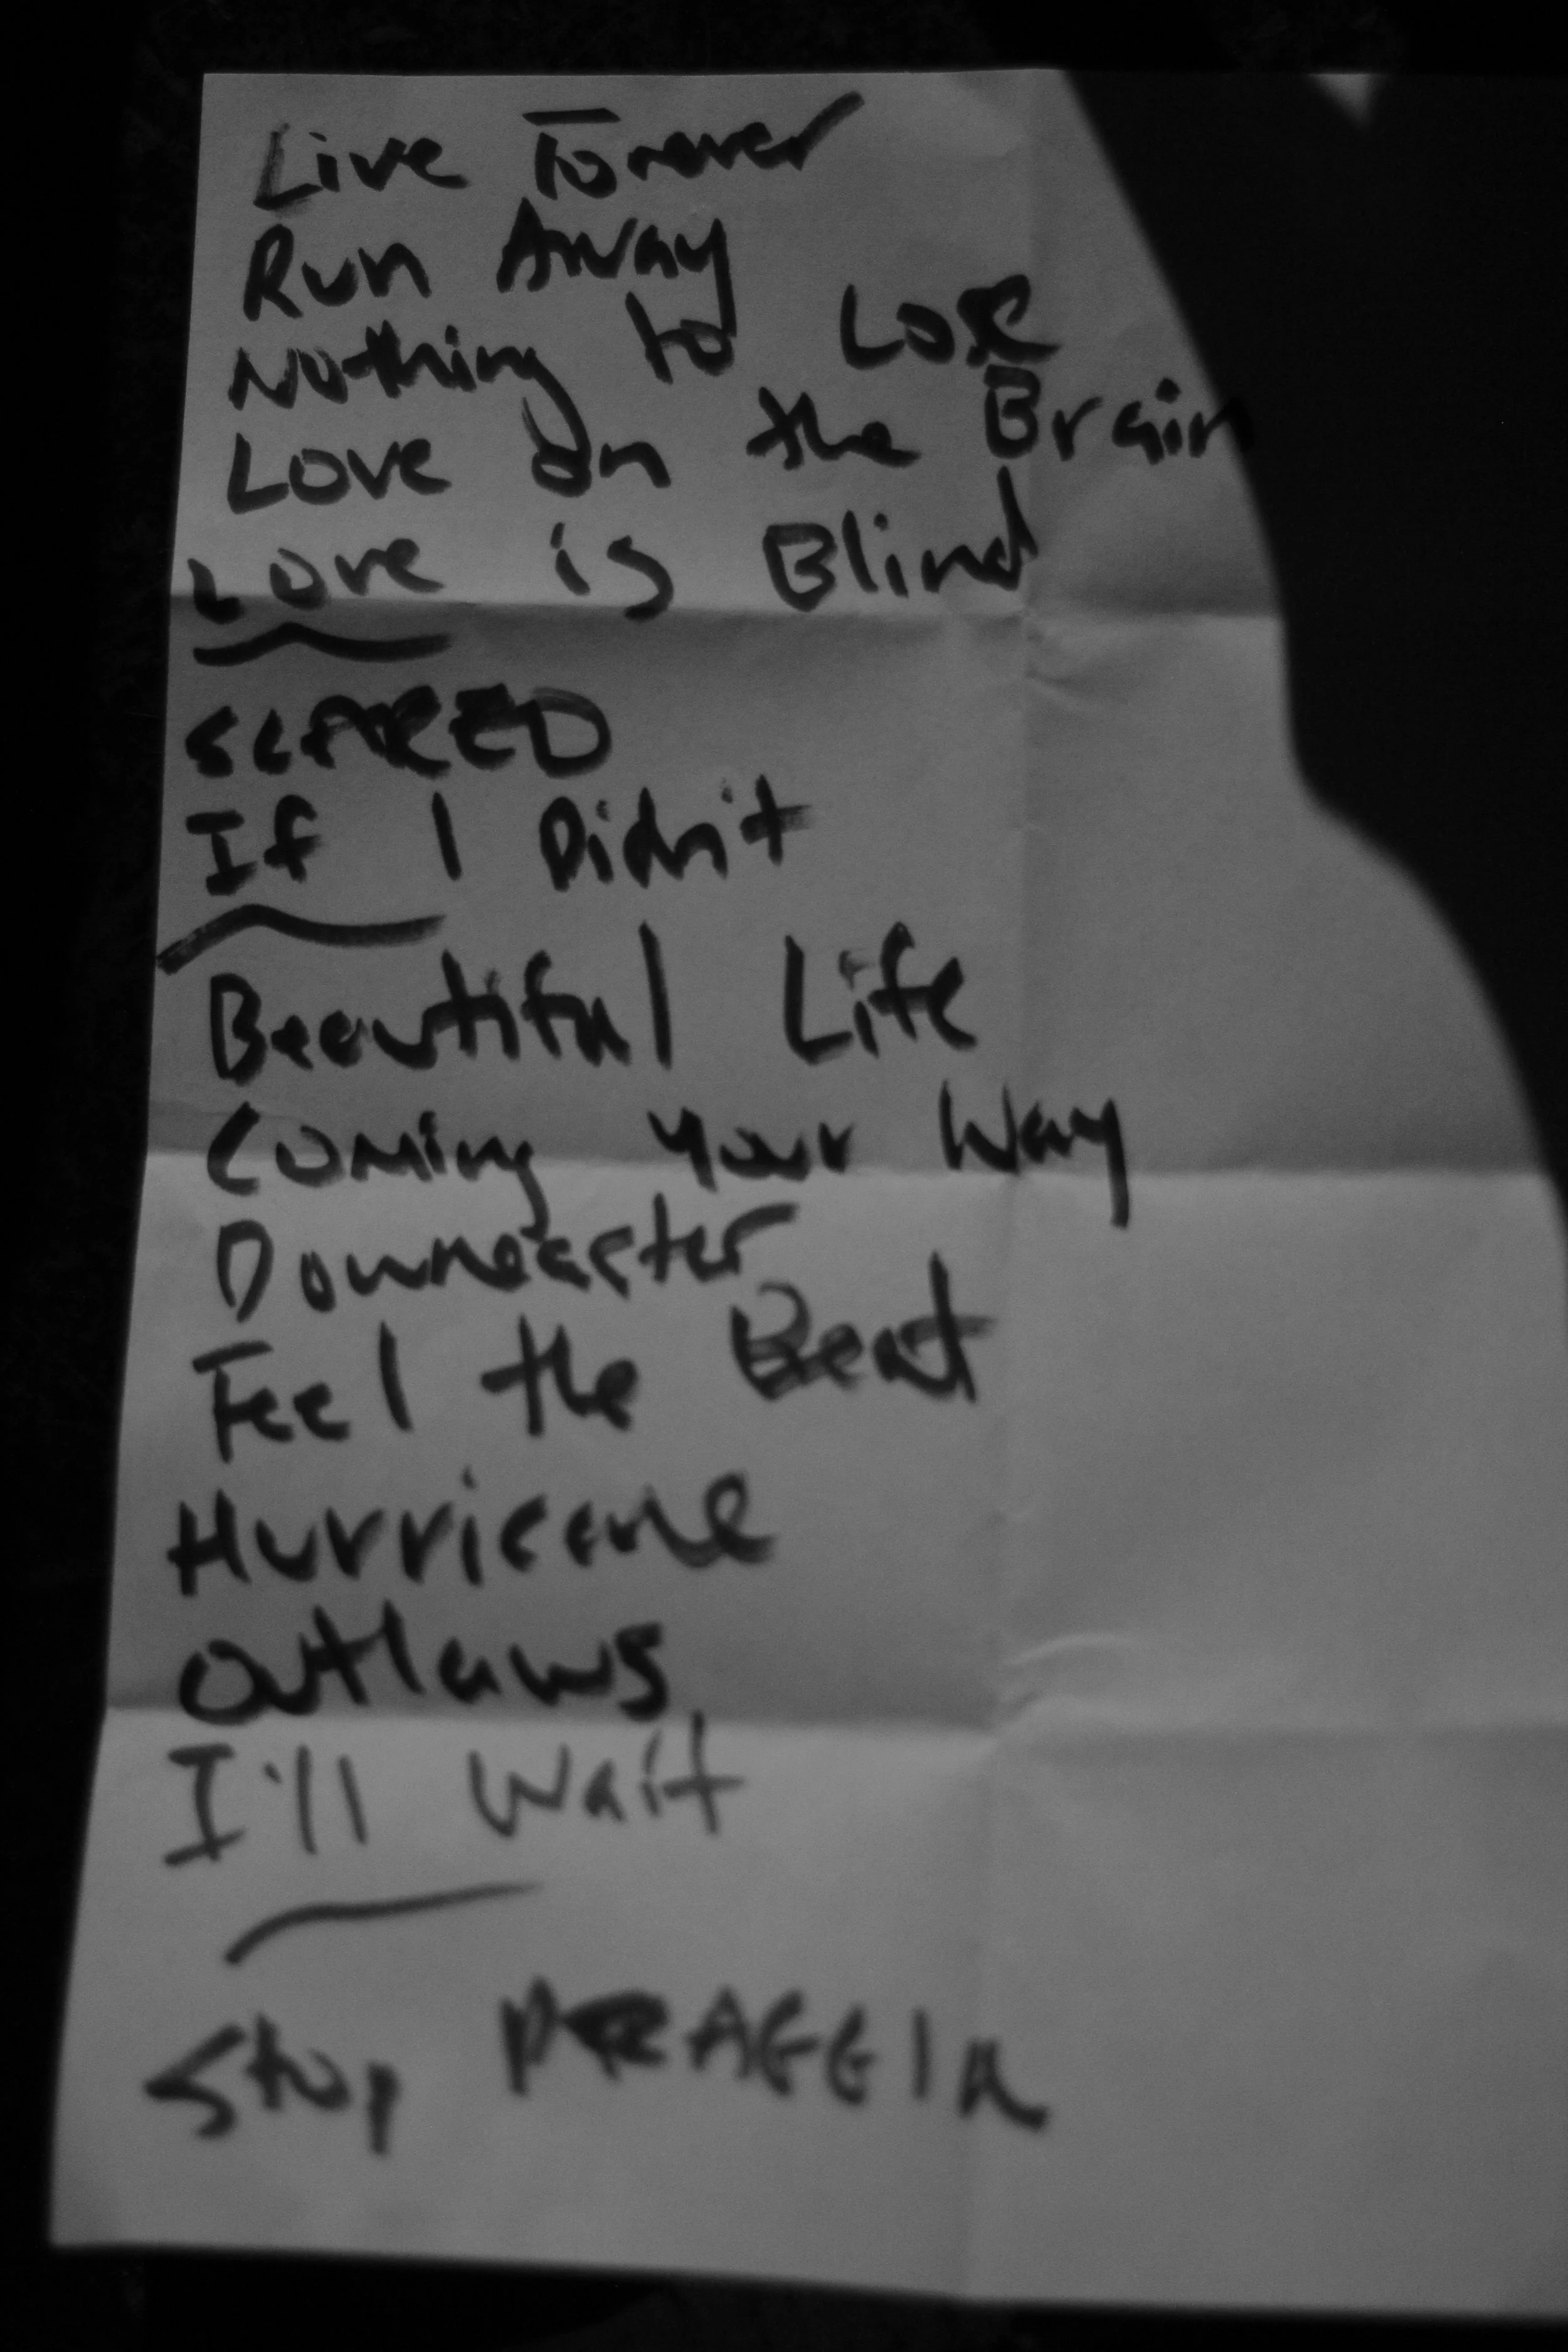 Live Forever
Run Away
Nothing to Lose
Love on the Brain
Love is Blind
SCARED
If I Didn't
Beautiful Life
Coming Your Way
Downeaster
Feel the Beat
Hurricane
Outlaws
I'll Wait
Stop DRAGGIN